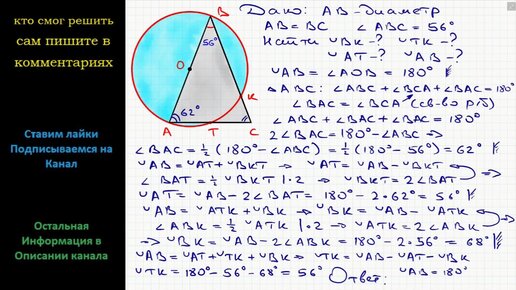 кто смог решить
сам пишите в
комментариях
Ставим лайки
Подписываемся на
Канал
Остальная
Информация в
Описании канала
B
56°
O
K
62°
A
T
C
Дано: AB - диаметр
AB = BC ∠ABC = 56°
Найти ◡BK - ? ◡TK - ?
◡AT - ? ◡AB - ?
◡AB = ∠AOB = 180°
△ABC: ∠ABC + ∠BCA + ∠BAC = 180°
∠BAC = ∠BCA (св-во р/б)
∠ABC + ∠BAC + ∠BAC = 180°
2∠BAC = 180° - ∠ABC ⇒
∠BAC = ½ (180° - ∠ABC) = ½ (180° - 56°) = 62°
◡AB = ◡AT + ◡BKT ⇒ ◡AT = ◡AB - ◡BKT
∠BAT = ½ ◡BKT | · 2 ⇒ ◡BKT = 2∠BAT
◡AT = ◡AB - 2∠BAT = 180° - 2 · 62° = 56°
◡AB = ◡ATK + ◡BK ⇒ ◡BK = ◡AB - ◡ATK
∠ABK = ½ ◡ATK | · 2 ⇒ ◡ATK = 2∠ABK
⇒ ◡BK = ◡AB - 2∠ABK = 180° - 2 · 56° = 68°
◡AB = ◡AT + ◡TK + ◡BK ⇒ ◡TK = ◡AB - ◡AT - ◡BK
◡TK = 180° - 56° - 68° = 56° Ответ: ◡AB = 180°